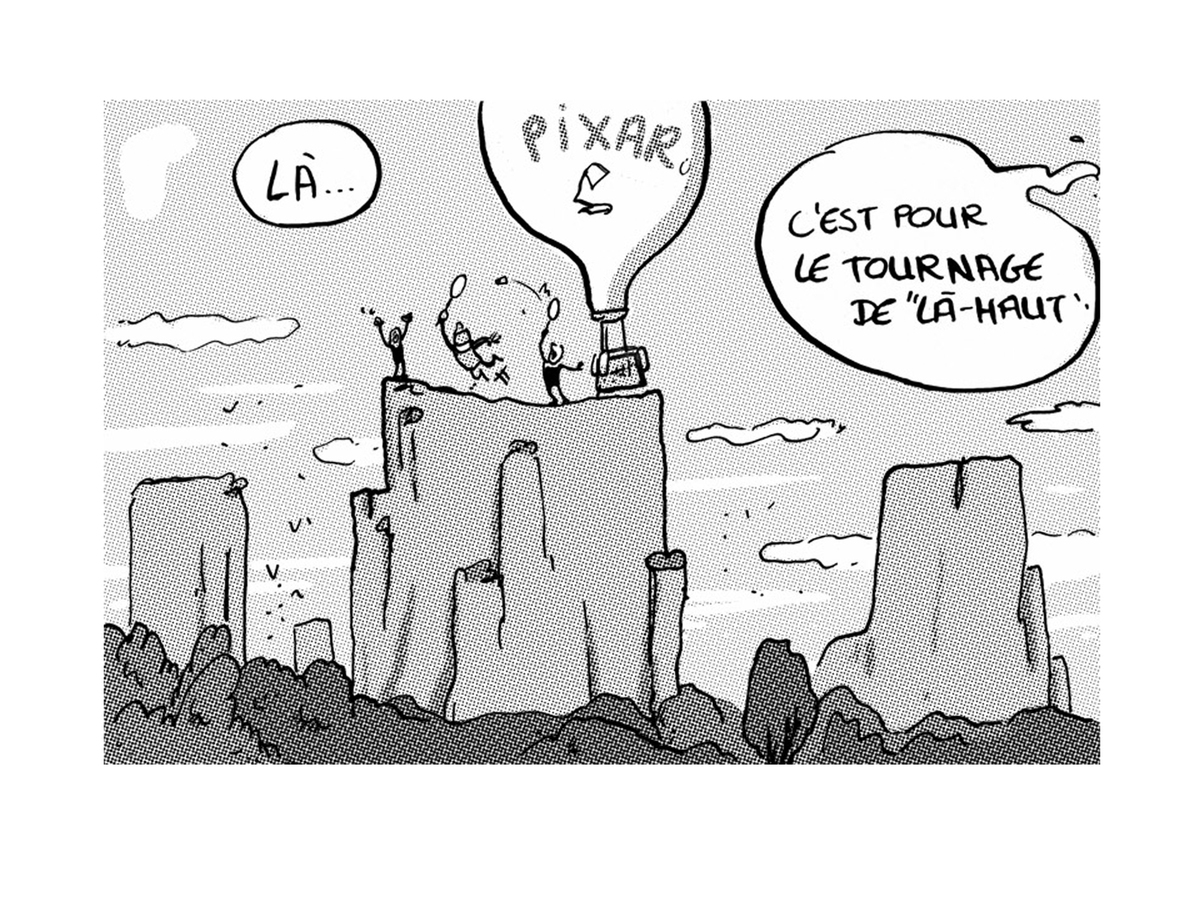 LÀ...
PiXAR
C'EST POUR
LE TOURNAGE
DE "LÀ-HAUT".